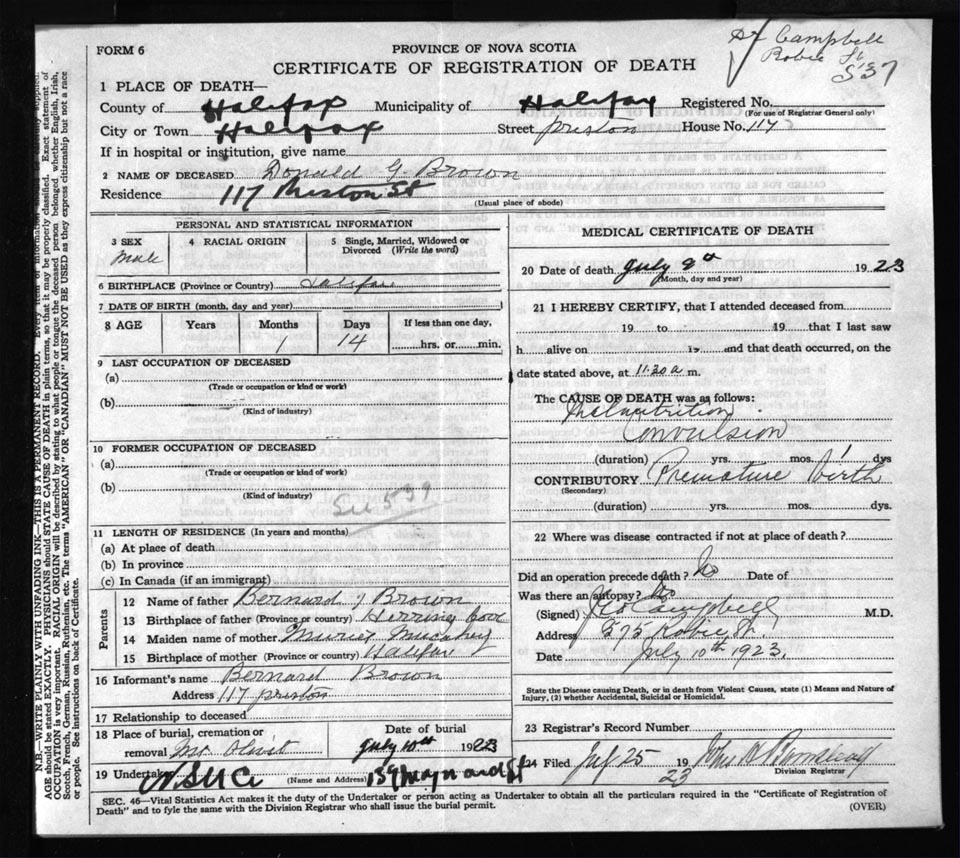 Dr Campbell
Robie St
537
FORM 6
PROVINCE OF NOVA SCOTIA
CERTIFICATE OF REGISTRATION OF DEATH
1 PLACE OF DEATH—
County of Halifax Municipality of Halifax Registered No.
(For use of Registrar General only)
City or Town Halifax Street Preston House No. 117
If in hospital or institution, give name
2 NAME OF DECEASED Donald G Brown
Residence 117 Preston St
(Usual place of abode)
PERSONAL AND STATISTICAL INFORMATION
3 SEX 4 RACIAL ORIGIN 5 Single, Married, Widowed or Divorced (Write the word)
Male
6 BIRTHPLACE (Province or Country) Halifax
7 DATE OF BIRTH (month, day and year)
8 AGE Years Months Days If less than one day,
1 14 hrs. or min.
9 LAST OCCUPATION OF DECEASED
(a)
(Trade or occupation or kind or work)
(b)
(Kind of industry)
10 FORMER OCCUPATION OF DECEASED
(a)
(Trade or occupation or kind of work)
(b)
(Kind of industry)
11 LENGTH OF RESIDENCE (In years and months)
(a) At place of death
(b) In province
(c) In Canada (if an immigrant)
Parents
12 Name of father Bernard J Brown
13 Birthplace of father (Province or country) Herring Cove
14 Maiden name of mother Muriel
15 Birthplace of mother (Province or country) Halifax
16 Informant's name Bernard Brown
Address 117 Preston
17 Relationship to deceased
18 Place of burial, cremation or removal Mt Olivet
Date of burial
July 10th 1923
19 Undertaker N.S.U.Co (Name and Address) 139 Maynard St
MEDICAL CERTIFICATE OF DEATH
20 Date of death July 9th 1923
(Month, day and year)
21 I HEREBY CERTIFY, that I attended deceased from
19 to 19 that I last saw
h alive on 19 and that death occurred, on the
date stated above, at 11.30 a m.
The CAUSE OF DEATH was as follows:
Malnutrition
Convulsion
(duration) yrs. mos. 1 dys
CONTRIBUTORY Premature birth
(Secondary)
(duration) yrs. mos. dys.
22 Where was disease contracted if not at place of death?
Did an operation precede death? No Date of
Was there an autopsy? No
(Signed) Campbell M.D.
Address 575 Robie St.
Date July 10th 1923.
State the Disease causing Death, or in death from Violent Causes, state (1) Means and Nature of
Injury, (2) whether Accidental, Suicidal or Homicidal.
23 Registrar's Record Number
24 Filed July 25 1923
Division Registrar
SEC. 46—Vital Statistics Act makes it the duty of the Undertaker or person acting as Undertaker to obtain all the particulars required in the "Certificate of Registration of
Death" and to fyle the same with the Division Registrar who shall issue the burial permit. (OVER)
N.B.—WRITE PLAINLY WITH UNFADING INK—THIS IS A PERMANENT RECORD. Every item of information should be carefully supplied.
AGE should be stated EXACTLY. PHYSICIANS should STATE CAUSE OF DEATH in plain terms, so that it may be properly classified. Exact statement of
OCCUPATION is very important. RACIAL ORIGIN will be described by stating to what people or tongue the deceased person belonged, whether English, Irish,
Scotch, French, German, Russian, Ruthenian, etc. The terms "AMERICAN" OR "CANADIAN" MUST NOT BE USED as they express citizenship but not a race
or people. See instructions on back of Certificate.